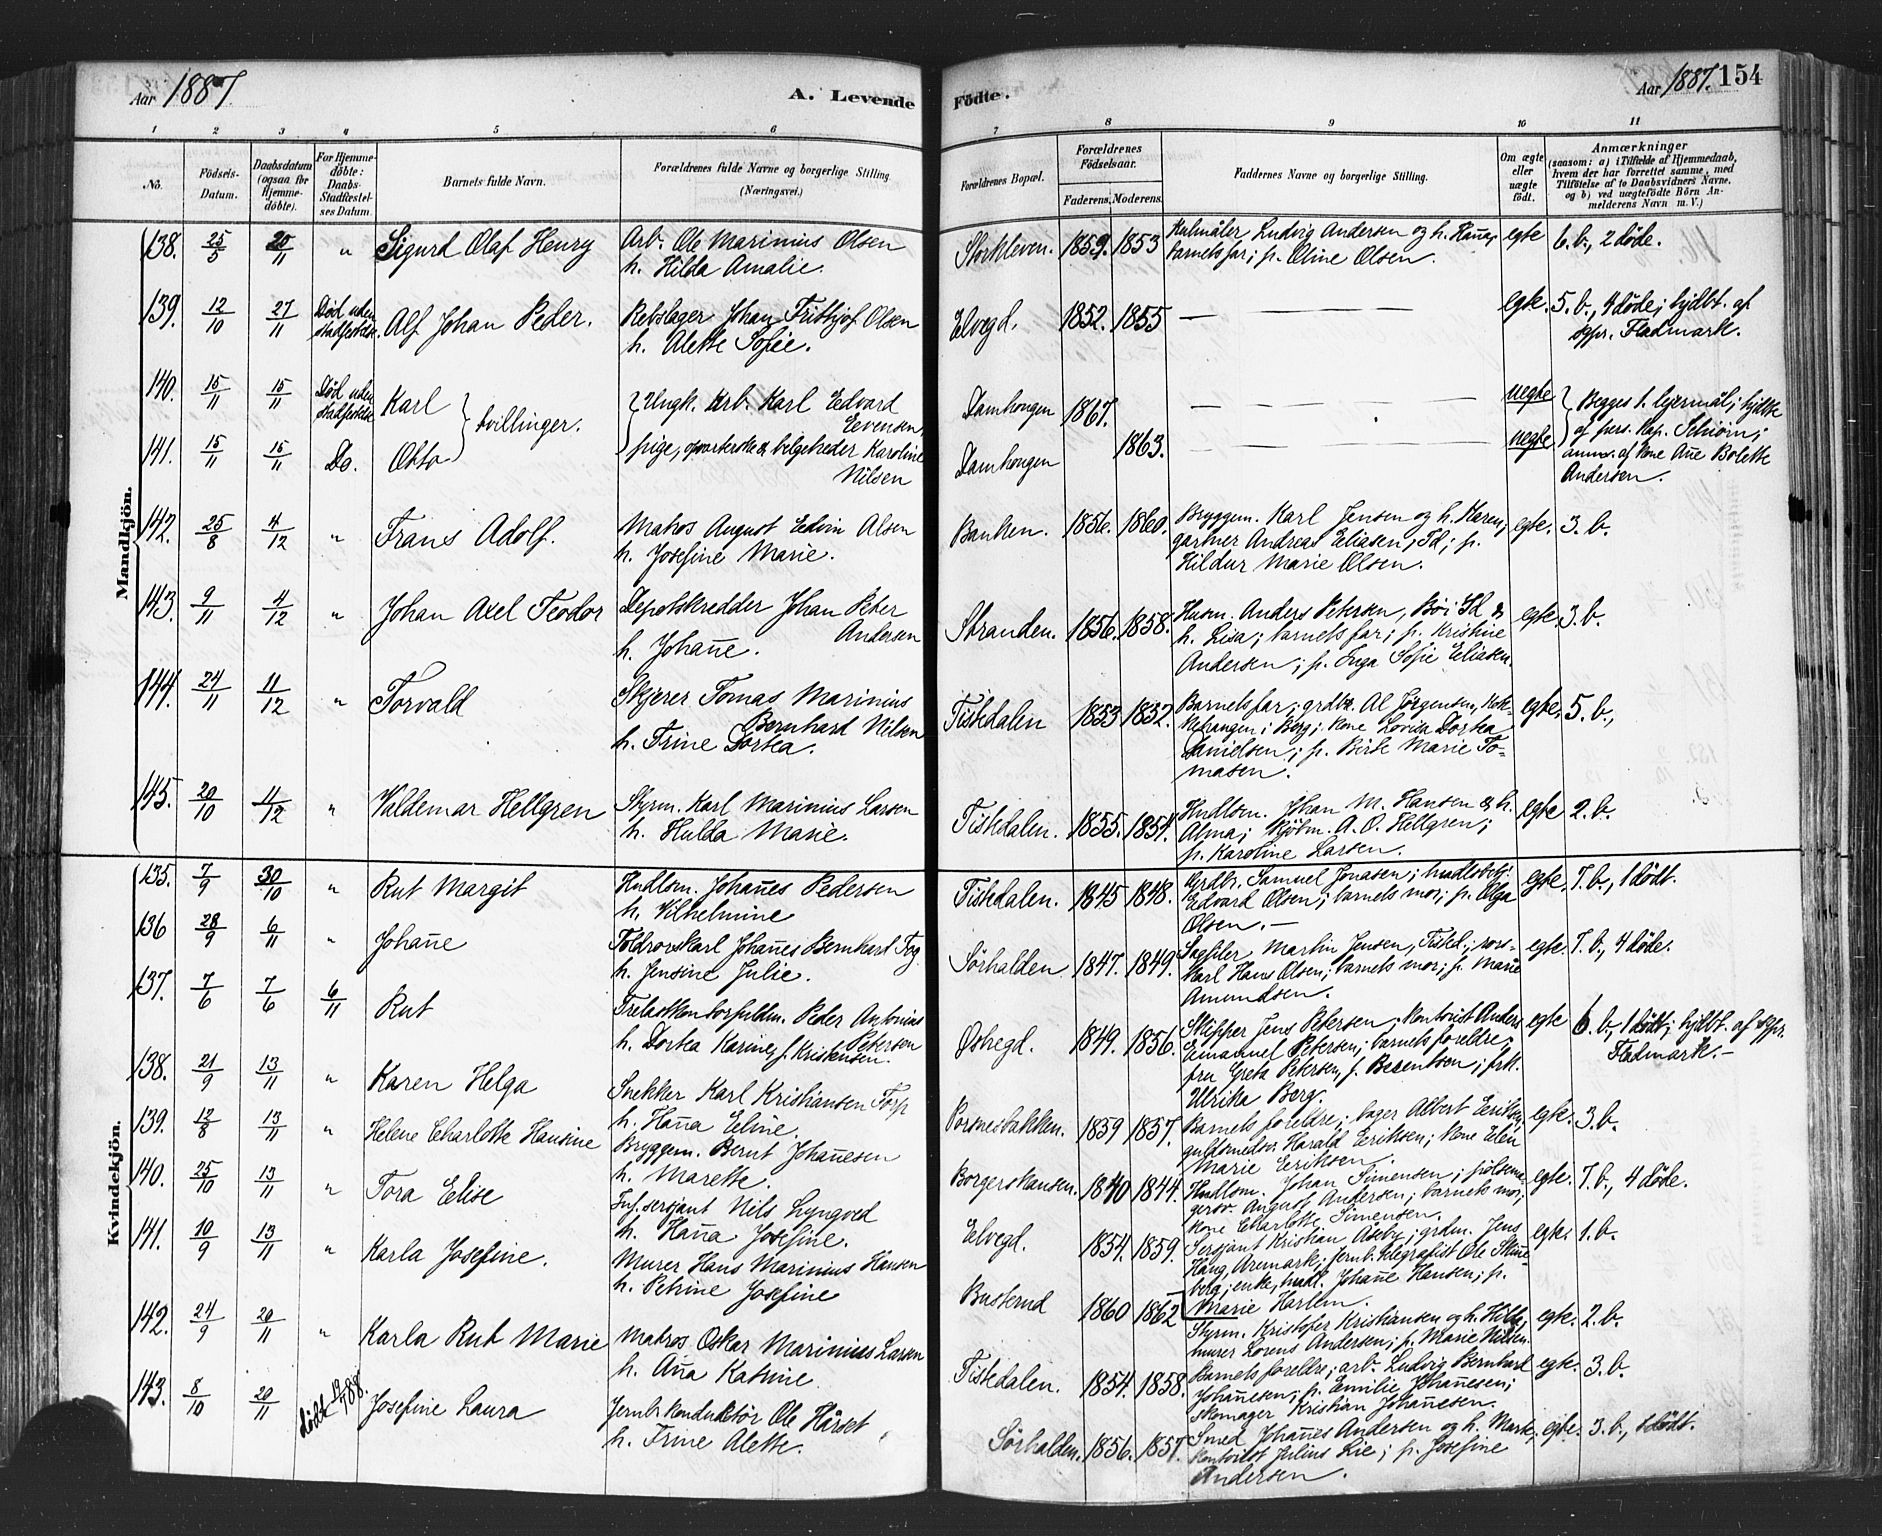 Aar 1887.
A. Levende
Fødte.
Aar 1887. 154
1 2 3 4 5 6 7 8 9 10 11
No.
Fødsels-Datum.
Daabsdatum (ogsaa for Hjemmedøbte).
For Hjemmedøbte: Daabs-Stadfæstelses Datum.
Barnets fulde Navn.
Forældrenes fulde Navne og borgerlige Stilling (Næringsvei.)
Forældrenes Bopæl.
Forældrenes Fødselsaar.
Faderens. Moderens.
Faddernes Navne og borgerlige Stilling.
Om ægte eller uægte født.
Anmærkninger
(saasom: a) i Tilfælde af Hjemmedaab, hvem der har forrettet samme, med Tilføielse af to Daabsvidners Navne, og b) ved uægtefødte Børn Anmelderens Navn m. V.)
Mandkjøn.
138. 25/5 20/11 " Sigurd Olaf Henry
Arb. Ole Marinius Olsen
h. Hilda Amalie.
Storkleven. 1859. 1853
Kulmåler Ludvig Andersen og h. Hana,
barnets far; p. Oline Olsen.
egte 6. b., 2 døde.
139. 12/10 27/11 Død uden stadfestelse. Alf Johan Peder.
Rebslager Johan Frithjof Olsen
h. Alette Sofie.
Elvegd. 1852. 1855 — — —
egte. 5. b., 4 døde; hjdbt. af
Fladmark.
140. 15/11 15/11 Død uden stadfestelse Karl
tvillinger.
Ungk. Arb. Karl Edvard
Evensen,
Damhaugen 1867. — — —
uegte
Begges 1. lejermål; hjdbte
af pers. kap. Schiørn;
141. 15/11 15/11 Do. Otto
pige, opvarterske & belgetreder Karoline
Nilsen
Damhaugen 1863. — — —
uegte
anm. af kone Ane Bolette
Andersen.
142. 25/8 4/12 " Frans Adolf.
Matros August Edvin Olsen
h. Josefine Marie.
Banken. 1856. 1860.
Bryggem. Karl Jensen og h. Karen;
gartner Andreas Eliasen, Td; p.
Hildur Marie Olsen.
egte. 3. b.
143. 9/11 4/12 " Johan Axel Teodor
Depotskredder Johan Peter
Andersen
h. Johane.
Stranden. 1856. 1858.
Husm. Anders Petersen, Bøi Id &
h. Lisa; barnets far; p. Kristine
Andersen; p. Inga Sofie Eliasen.
egte. 3. b.
144. 24/11 11/12 " Torvald
Skjerer Tomas Marinius
Bernhard Nilsen
h. Trine Dortea.
Tistedalen 1853 1852.
Barnets far; grdbr. Al Jørgensen,
i Berg; kone Lovisa Dortea
Danielsen; p. Birte Marie To-
masen.
egte. 5. b.,
145. 20/10 11/12 " Valdemar Hellgren
Styrm. Karl Marinius Larsen
h. Hulda Marie.
Tistedalen. 1855. 1854.
Hndlsm. Johan M. Hansen & h.
Alma; Kjøbm. A. O. Hellgren;
p. Karoline Larsen.
egte 2. b.
Kvindekjøn.
135. 7/9 30/10 " Rut Margit
Hndlsm. Johanes Pedersen
h. Vilhelmine
Tistedalen. 1845 1848.
Grdbr. Samuel Jonasen; hndlsbetj.
Edvard Olsen; barnets mor; p. Olga
Olsen. —
egte. 7. b., 1 dødt.
136 28/9 6/11 " Johane
Toldrorskarl Johanes Bernhard Fyg
h. Jensine Julie.
Sørhalden 1847. 1849.
Sagfiler Martin Jensen, Tisted.; rors-
karl Hans Olsen; barnets mor; p. Marie
Amundsen.
egte. 7. b., 4 døde.
137. 7/6 7/6 6/11 Rut
Trelastkontorfuldm. Peder Antonius
Petersen
h. Dortea Karine, f. Kristensen.
Osregd. 1849. 1856.
Skipper Jens Petersen; kontorist Anders
Emanuel Petersen; barnets foreldre;
fru Greta Petersen, f. Berentsen; frk.
Ulrika Berg.
egte 6. b., 1 dødt; hjdbt. af
Fladmark. —
138. 21/9 13/11 " Karen Helga
Snekker Karl Kristiansen Torp
h. Hana Eline.
Porsnesbakken. 1859 1857.
Barnets foreldre; bager Albert Eriksen;
guldsmedsv. Harald Eriksen; kone Elen
Marie Eriksen.
egte. 3. b.
139. 12/8 13/11 " Helene Charlotte Hansine
Bryggem. Bernt Johanesen
h. Marette.
Borgerskansen. 1840 1844.
Hndlsm. Johan Simensen; pølsema-
gersv. August Andersen; barnets mor;
kone Charlotte Simensen.
egte. 7. b., 4 døde.
140. 25/10 13/11 " Tora Elise
Inf. sersjant Nils Lyngved
h. Hana Josefine.
Elvegd. 1854. 1859.
Sersjant Kristian Aseby; grdm. Jens
Haug, Aremark; Jernb. telegrafist Ole
berg; enke, hndl. Johane Hansen; p.
Marie Harlem.
egte. 1. b.
141. 10/9 13/11 " Karla Josefine.
Murer Hans Marinius Hansen
h. Petrine Josefine
Busterud 1860 1862
Styrm. Kristofer Kristiansen og h. Hilda,
murer Lorens Andersen; p. Marie Nilsen.
egte. 2. b.
142. 24/9 20/11 " Karla Rut Marie
Matros Oskar Marinius Larsen
h. Ana Katrine
Tistedalen. 1854. 1858.
Barnets foreldre; arb. Ludvig Bernhard
Johanesen; p. Emilie Johanesen;
skomager Kristian Johanesen.
egte. 3. b.
143. 8/10 20/11 Josefine Laura
Jernb. konduktør Ole Hårset
h. Trine Alette.
Sørhalden. 1856. 1857.
Smed Johanes Andersen og h. Marte;
kontorist Julius Lie; p. Josefine
Andersen.
egte. 3. b., 1 dødt.